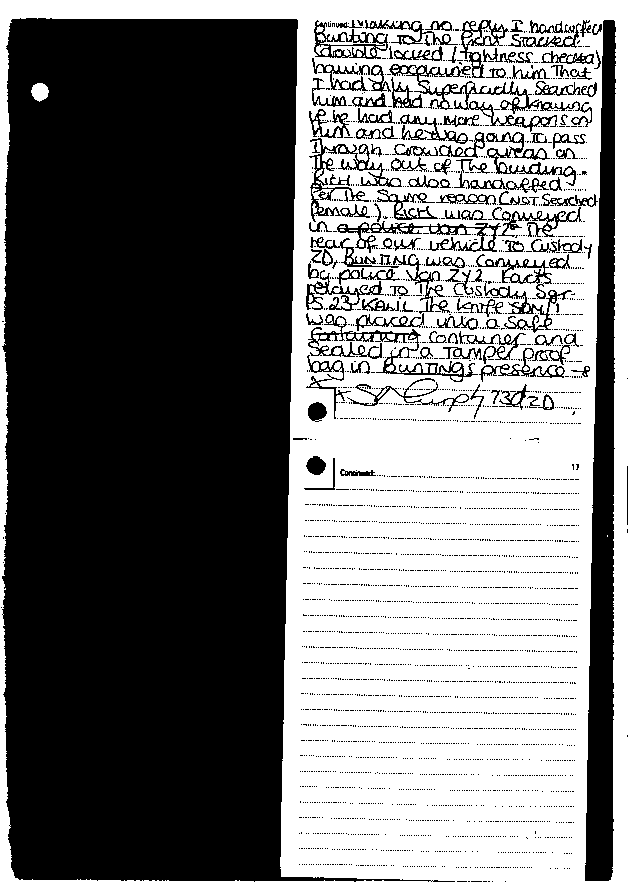 Continued: Making no reply I handcuffed
Bunting to the front stacked
(double locked / tightness checked)
having explained to him that
I had only superficially searched
him and had no way of knowing
if he had any more weapons on
him and he was going to pass
through crowded areas on
the way out of the building.
RICH was also handcuffed
for the same reason (NOT Searched
female). RICH was conveyed
in a police van ZY2 The
rear of our vehicle to custody
ZD, BUNTING was conveyed
by police van ZY2. Facts
relayed to the custody Sgt
PS 23 The knife
was placed into a safe
containing container and
sealed in a tamper proof
bag in BUNTINGS presence
ZD
Continued: 17